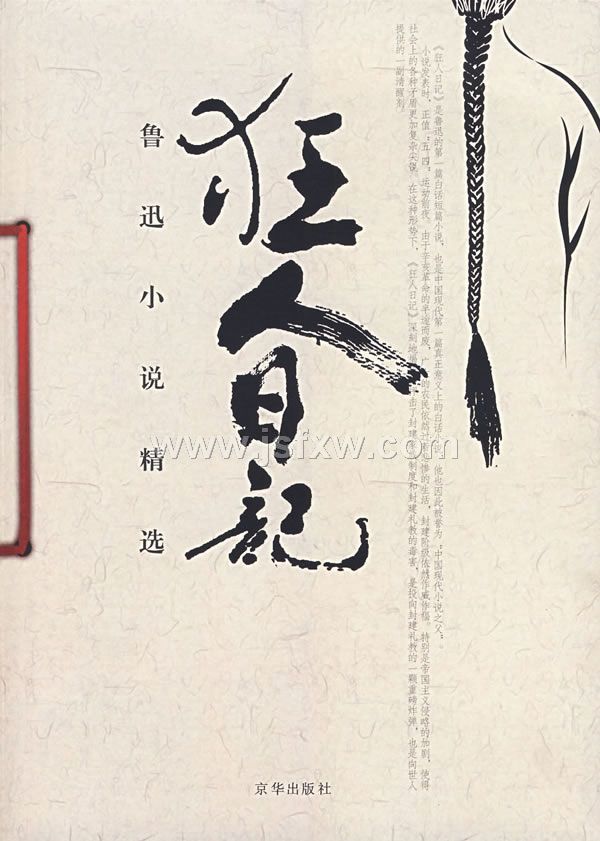 《狂人日记》是鲁迅的第一篇白话短篇小说，也是中国现代第一篇真正意义上的白话小说，他也因此被誉为“中国现代小说之父”。
小说发表时，正值“五四”运动前夜。由于辛亥革命的半途而废，广大的农民依然过着悲惨的生活，封建阶级依然作威作福。特别是帝国主义侵略的加剧，使得
社会上的各种矛盾更加复杂尖锐。在这种形势下，《狂人日记》深刻地
击了封建
制度和封建礼教的毒害，是投向封建礼教的一颗重磅炸弹，也是向世人
提供的一副清醒剂。
狂人日記
鲁迅小说精选
www.jsfxw.com
京华出版社